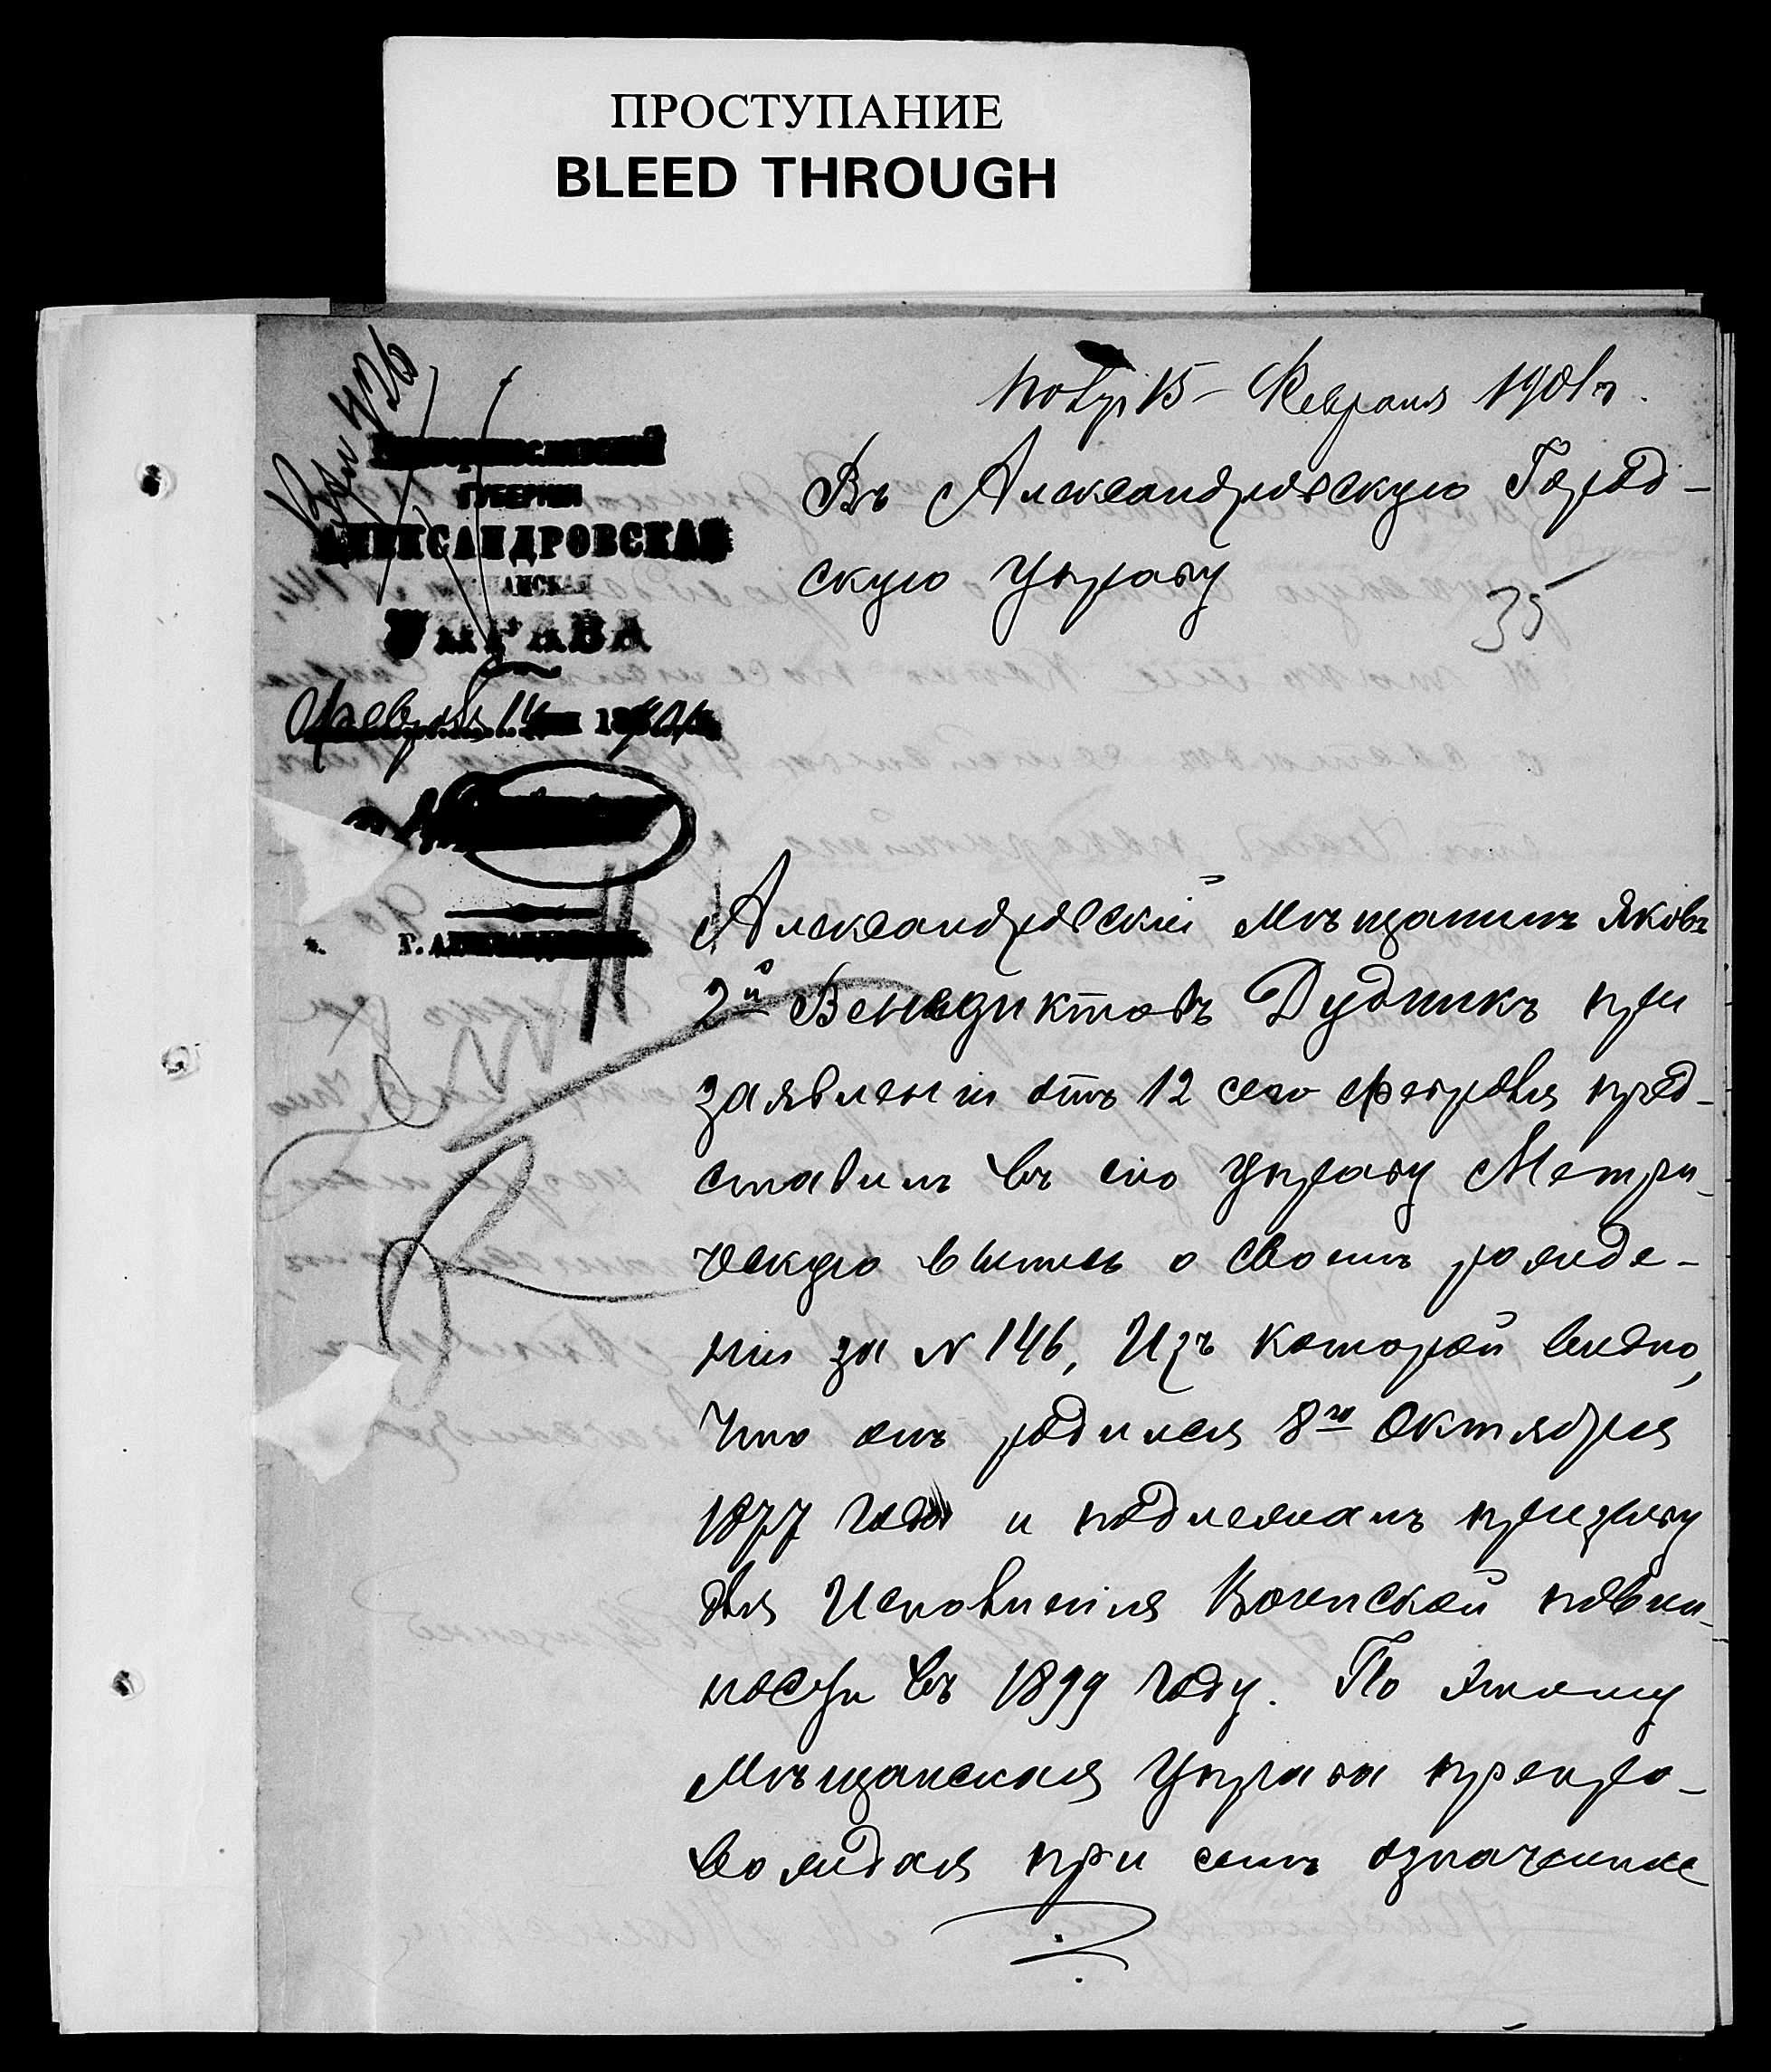 ПРОСТУПАНИЕ
BLEED THROUGH
15 Февраля 1901 г.
Въ Александровскую Город-
скую Управу
35
ГУБЕРНІИ
АЛЕКСАНДРОВСКАЯ
УПРАВА
Февраля 14
Александровскій мѣщанинъ Яковъ
2й Венедиктовъ Дудникъ при
заявленіи отъ 12 сего февраля пред-
ставилъ въ сію Управу Метри-
ческую выпись о своемъ рожде-
ніи за № 146, Изъ которой видно,
что онъ родился 8го Октября
1877 года и подлежалъ призыву
для Исполненія Воинской повин-
ности въ 1899 году. По этому
Мѣщанская Управа препро-
вождая при семъ означенные